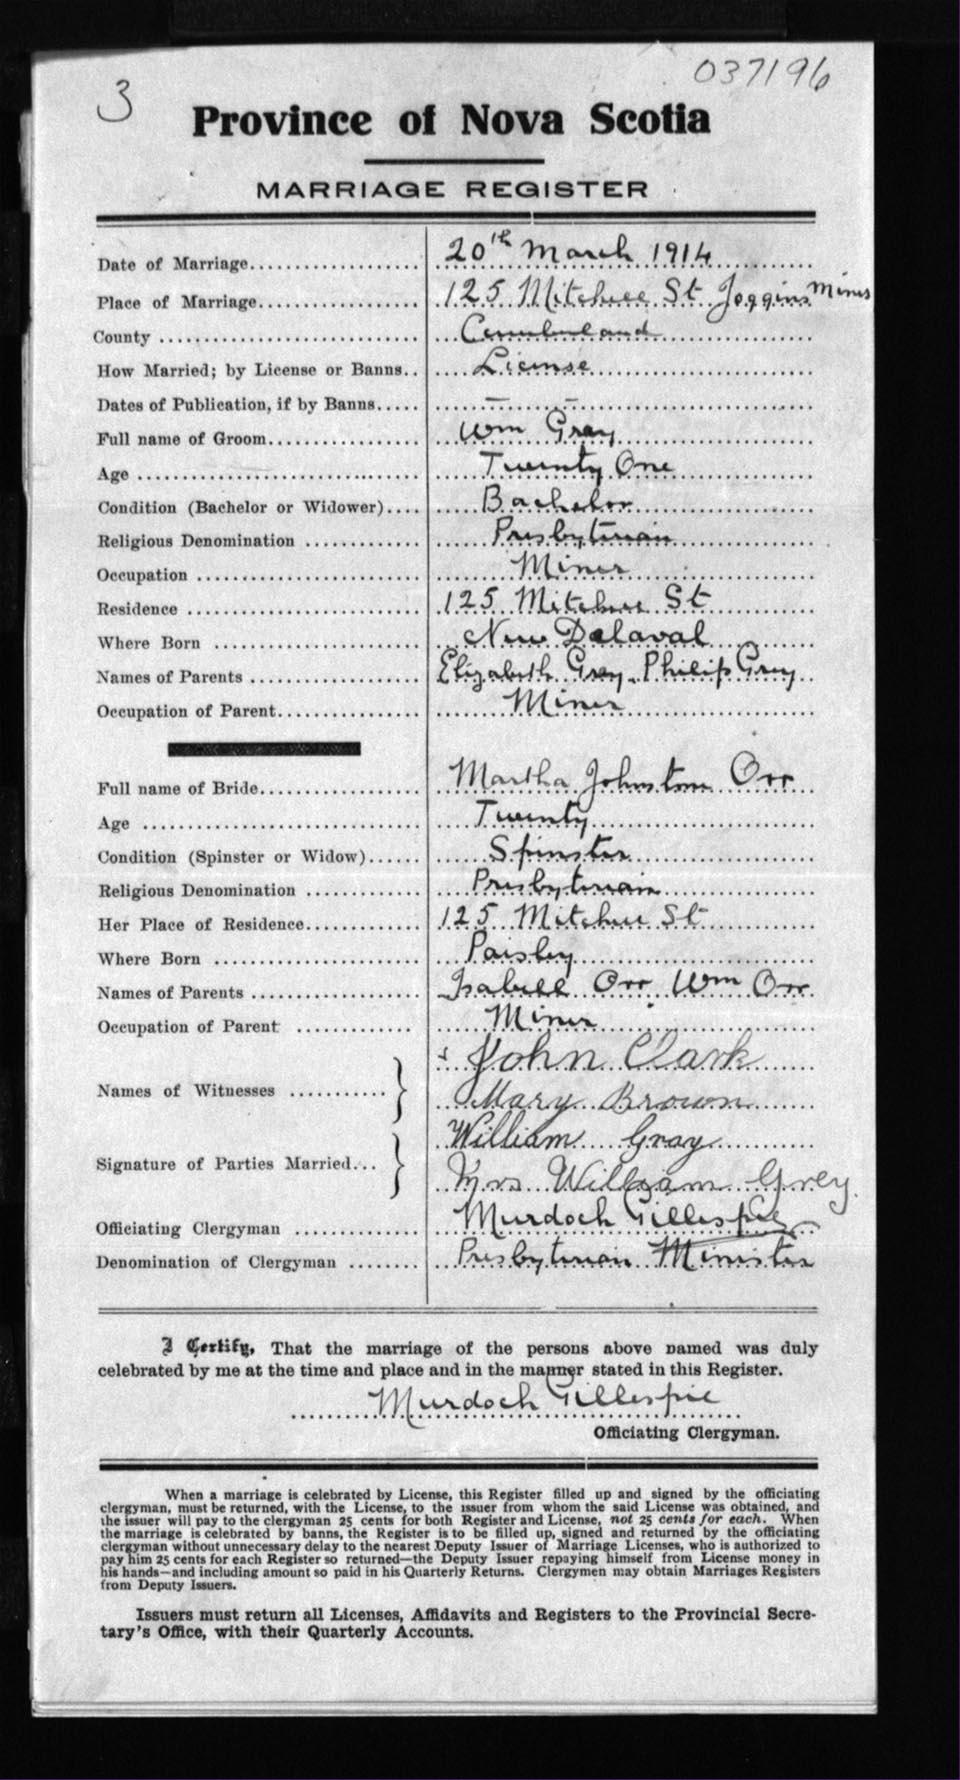 3
037196
Province of Nova Scotia
MARRIAGE REGISTER
Date of Marriage.................. 20th March 1914
Place of Marriage.................. 125 Mitchell St Joggins Mines
County .................. Cumberland
How Married; by License or Banns.. License
Dates of Publication, if by Banns..... — —
Full name of Groom.................. Wm Gray
Age .................. Twenty One
Condition (Bachelor or Widower).... Bachelor
Religious Denomination ............ Presbyterian
Occupation .................. Miner
Residence .................. 125 Mitchell St
Where Born .................. New Delaval
Names of Parents .................. Elizabeth Grey. Philip Grey
Occupation of Parent.................. Miner
Full name of Bride.................. Martha Johnstone Orr
Age .................. Twenty
Condition (Spinster or Widow)...... Spinster
Religious Denomination ............ Presbyterian
Her Place of Residence............ 125 Mitchell St
Where Born .................. Paisley
Names of Parents .................. Isabell Orr Wm Orr
Occupation of Parent ............ Miner
Names of Witnesses ........... John Clark
Mary Brown
Signature of Parties Married... William Gray
Mrs William Grey
Officiating Clergyman ............ Murdoch Gillespie
Denomination of Clergyman ........ Presbyterian Minister
I Certify, That the marriage of the persons above named was duly
celebrated by me at the time and place and in the manner stated in this Register.
Murdoch Gillespie
Officiating Clergyman.
When a marriage is celebrated by License, this Register filled up and signed by the officiating
clergyman, must be returned, with the License, to the issuer from whom the said License was obtained, and
the issuer will pay to the clergyman 25 cents for both Register and License, not 25 cents for each. When
the marriage is celebrated by banns, the Register is to be filled up, signed and returned by the officiating
clergyman without unnecessary delay to the nearest Deputy Issuer of Marriage Licenses, who is authorized to
pay him 25 cents for each Register so returned—the Deputy Issuer repaying himself from License money in
his hands—and including amount so paid in his Quarterly Returns. Clergymen may obtain Marriages Registers
from Deputy Issuers.
Issuers must return all Licenses, Affidavits and Registers to the Provincial Secre-
tary's Office, with their Quarterly Accounts.